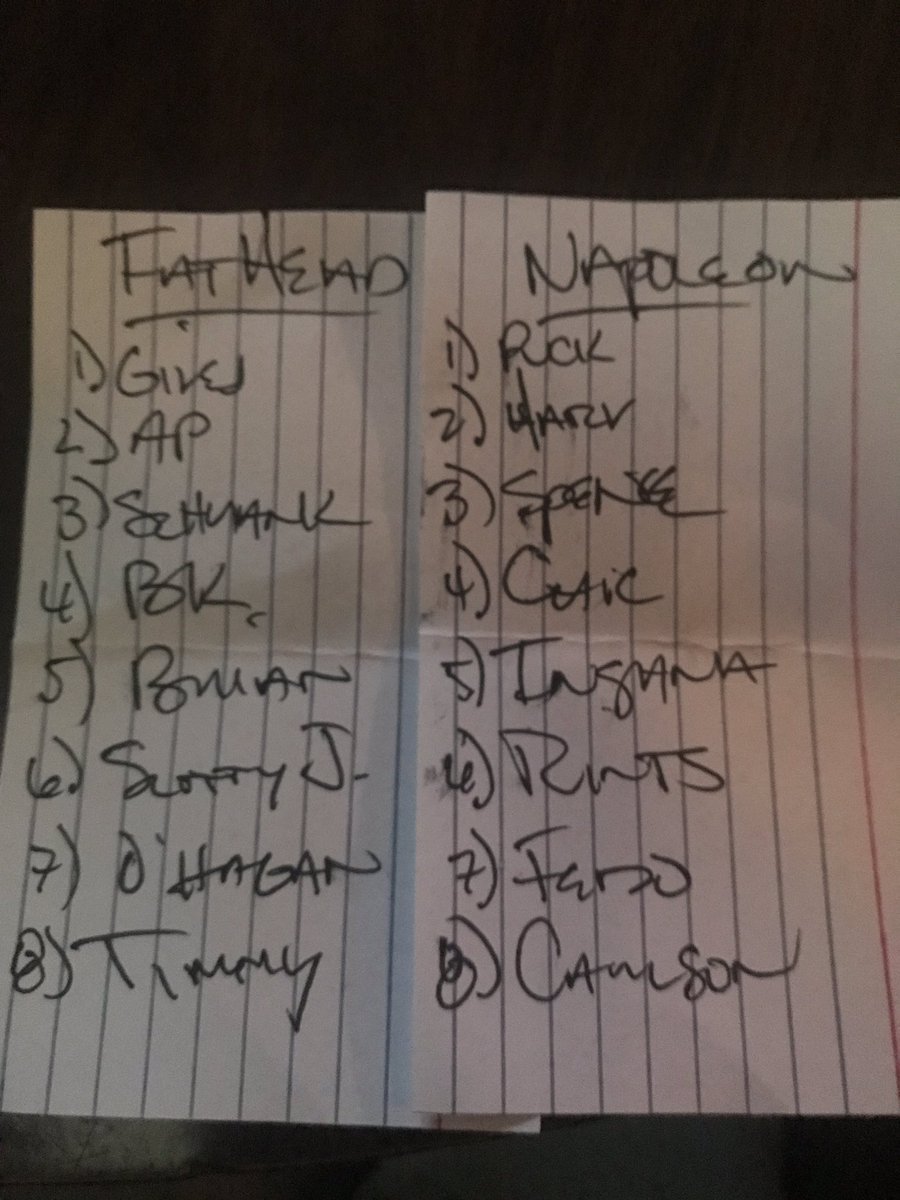 FATHEAD
1) GIVES
2) AP
3) SCHWANK
4) BK
5) BRIAN
6) SCOTTY J.
7) O'HAGAN
8) TIMMY
NAPOLEON
1) RICK
2) HARV
3) SPENSE
4) CRAIC
5) INSANA
6)
7)
8) CARLSON